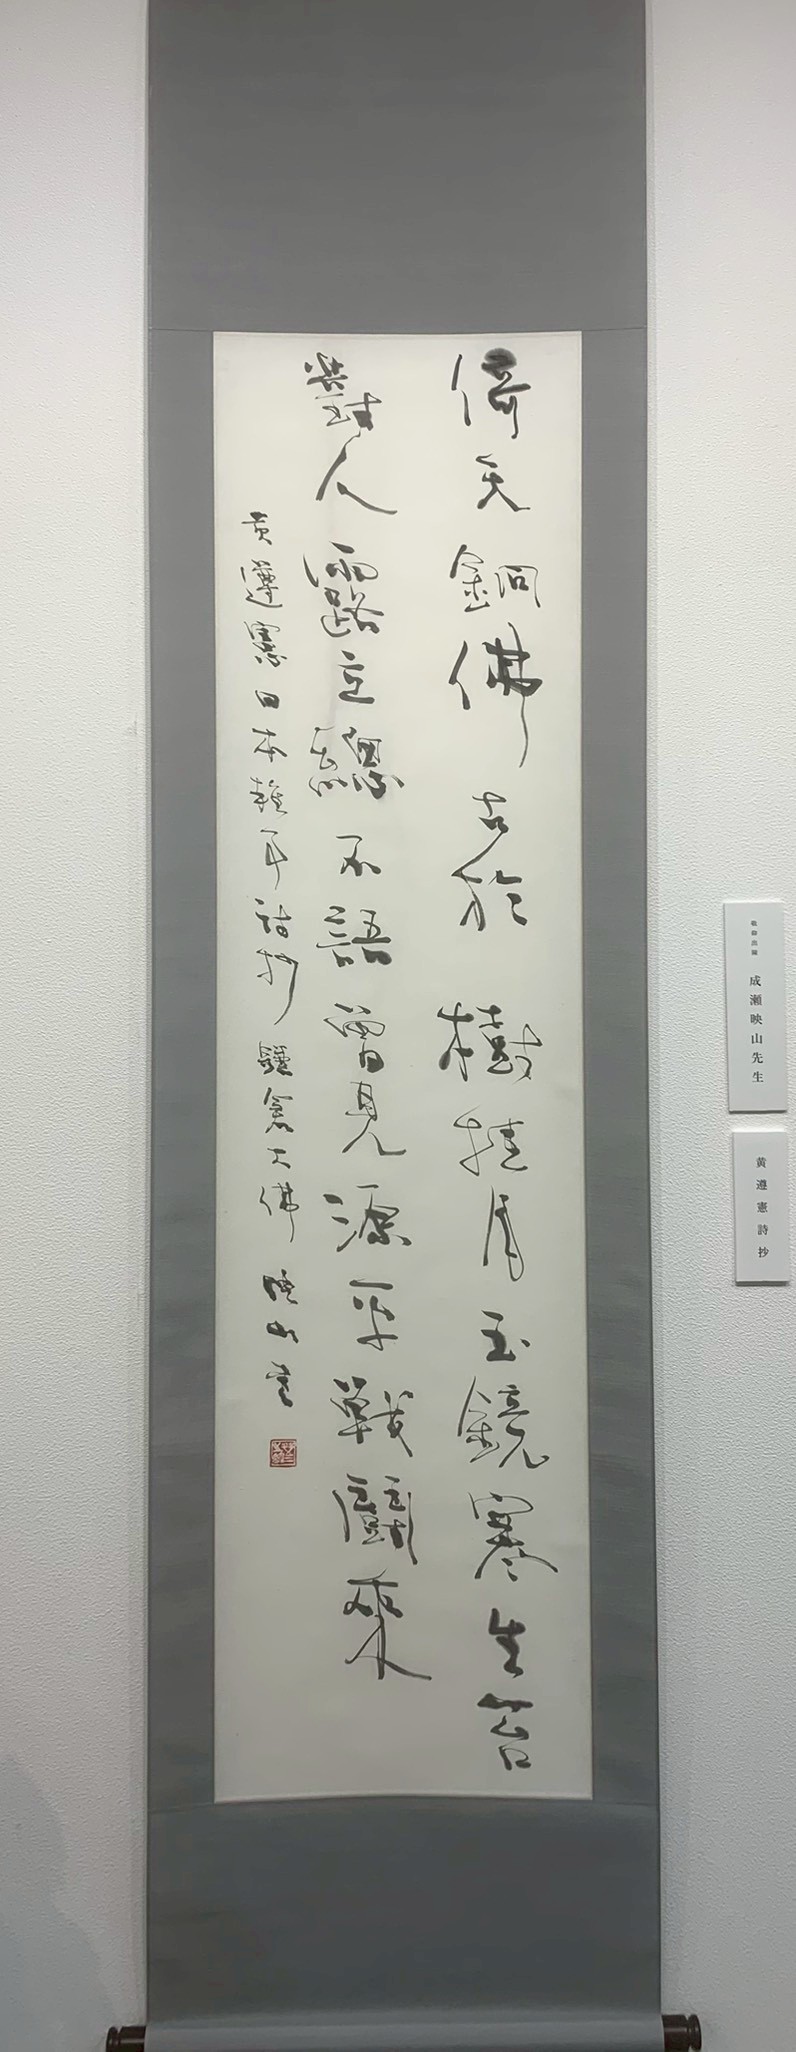 倚天銅佛古於樹挂月玉鏡寒生苔
對人露立總不語曾見源平戰鬪來
黄遵憲日本雜事詩抄 鎌倉大佛 映山書
成瀬映山先生
黄遵憲詩抄